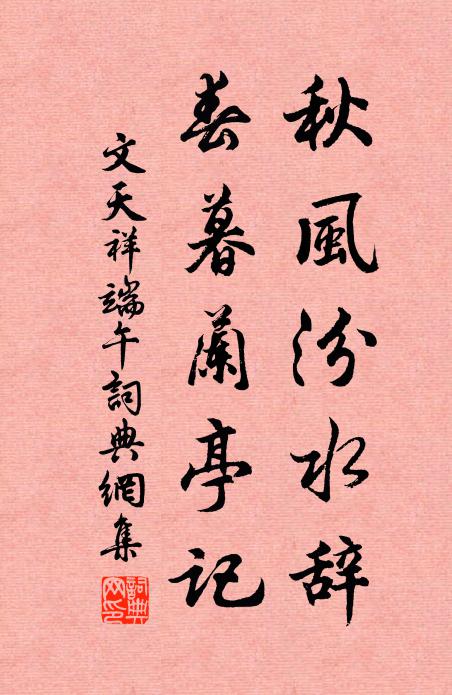 秋風汾水辞
春暮蘭亭記
文天祥端午詞典網集
詞典
网印